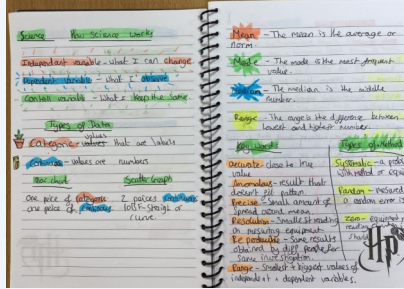 Science How Science works
Independent variable - what I can change
Dependent variable - what I observe
Control variable - What I keep the same
Types of Data
Categoric - values that are labels
Continuous - values are numbers
Bar chart Scatter Graph
one piece of categoric 2 pieces continuous
one piece of continuous LOBF - straight or
curve.
Mean - The mean is the average or
norm.
Mode - The mode is the most frequent
value.
Median - The median is the middle
number.
Range - The range is the difference between
lowest and highest number.
Key words
accurate - close to true
value
Anomalous - result that
doesn't fit pattern
Precise - Small amount of
spread around mean.
Resolution - Smallest reading
on measuring equipment.
Reproducible - Same results
obtained by diff people for
same investigation.
Range - smallest + biggest values of
independent + dependent variables.
Types of Method
Systematic - a
Random -
a random error is
Zero - equipment
reading
HP